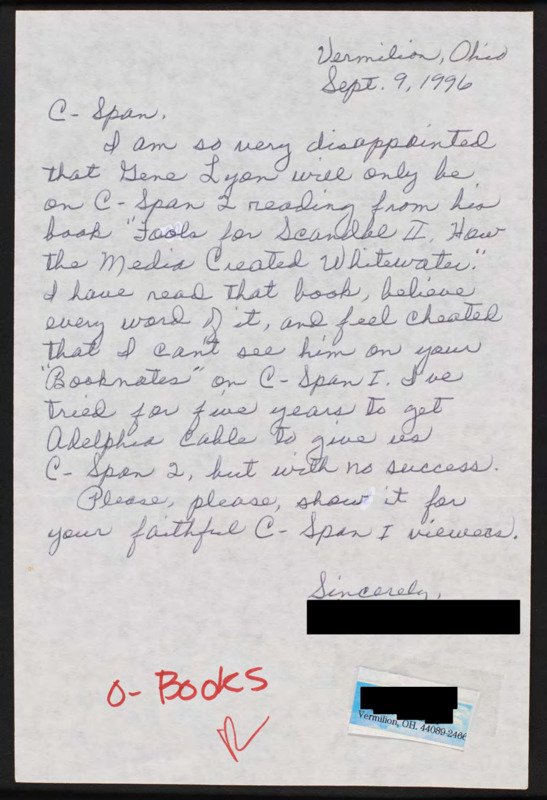 Vermilion, Ohio
Sept. 9, 1996
C-Span,
I am so very disappointed
that Gene Lyon will only be
on C-Span 2 reading from his
book "Fools for Scandal II, How
the Media Created Whitewater."
I have read that book, believe
every word of it, and feel cheated
that I can't see him on your
"Booknates" on C-Span I. I've
tried for five years to get
Adelphia Cable to give us
C-Span 2, but with no success.
Please, please, show it for
your faithful C-Span I viewers.
Sincerely,
O-Books
Vermilion, OH. 44089-246